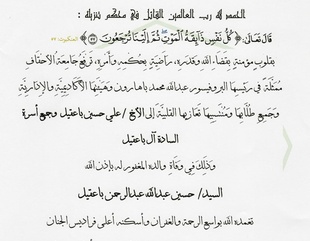 الحمد لله رب العالمين القائل في محكم تنزيله :
قال تعالى: ﴿ كُلُّ نَفْسٍ ذَائِقَةُ الْمَوْتِ ثُمَّ إِلَيْنَا تُرْجَعُونَ ﴾ العنكبوت ٥٧
بقلوب مؤمنة بقضاء الله وقدره، راضية بحكمه وأمره، ترفع جامعة الأحقاف
ممثلة في رئيسها البروفيسور عبدالله محمد باهارون وهيئتها الأكاديمية والإدارية
وجميع طلابها ومنتسبيها تعازيها القلبية إلى الأخ / علي حسين باعقيل وجميع أسرة
السادة آل باعقيل
وذلك في وفاة والده المغفور له بإذن الله
السيد/ حسين عبدالله عبدالرحمن باعقيل
تغمده الله بواسع الرحمة والغفران وأسكنه أعلى فراديس الجنان